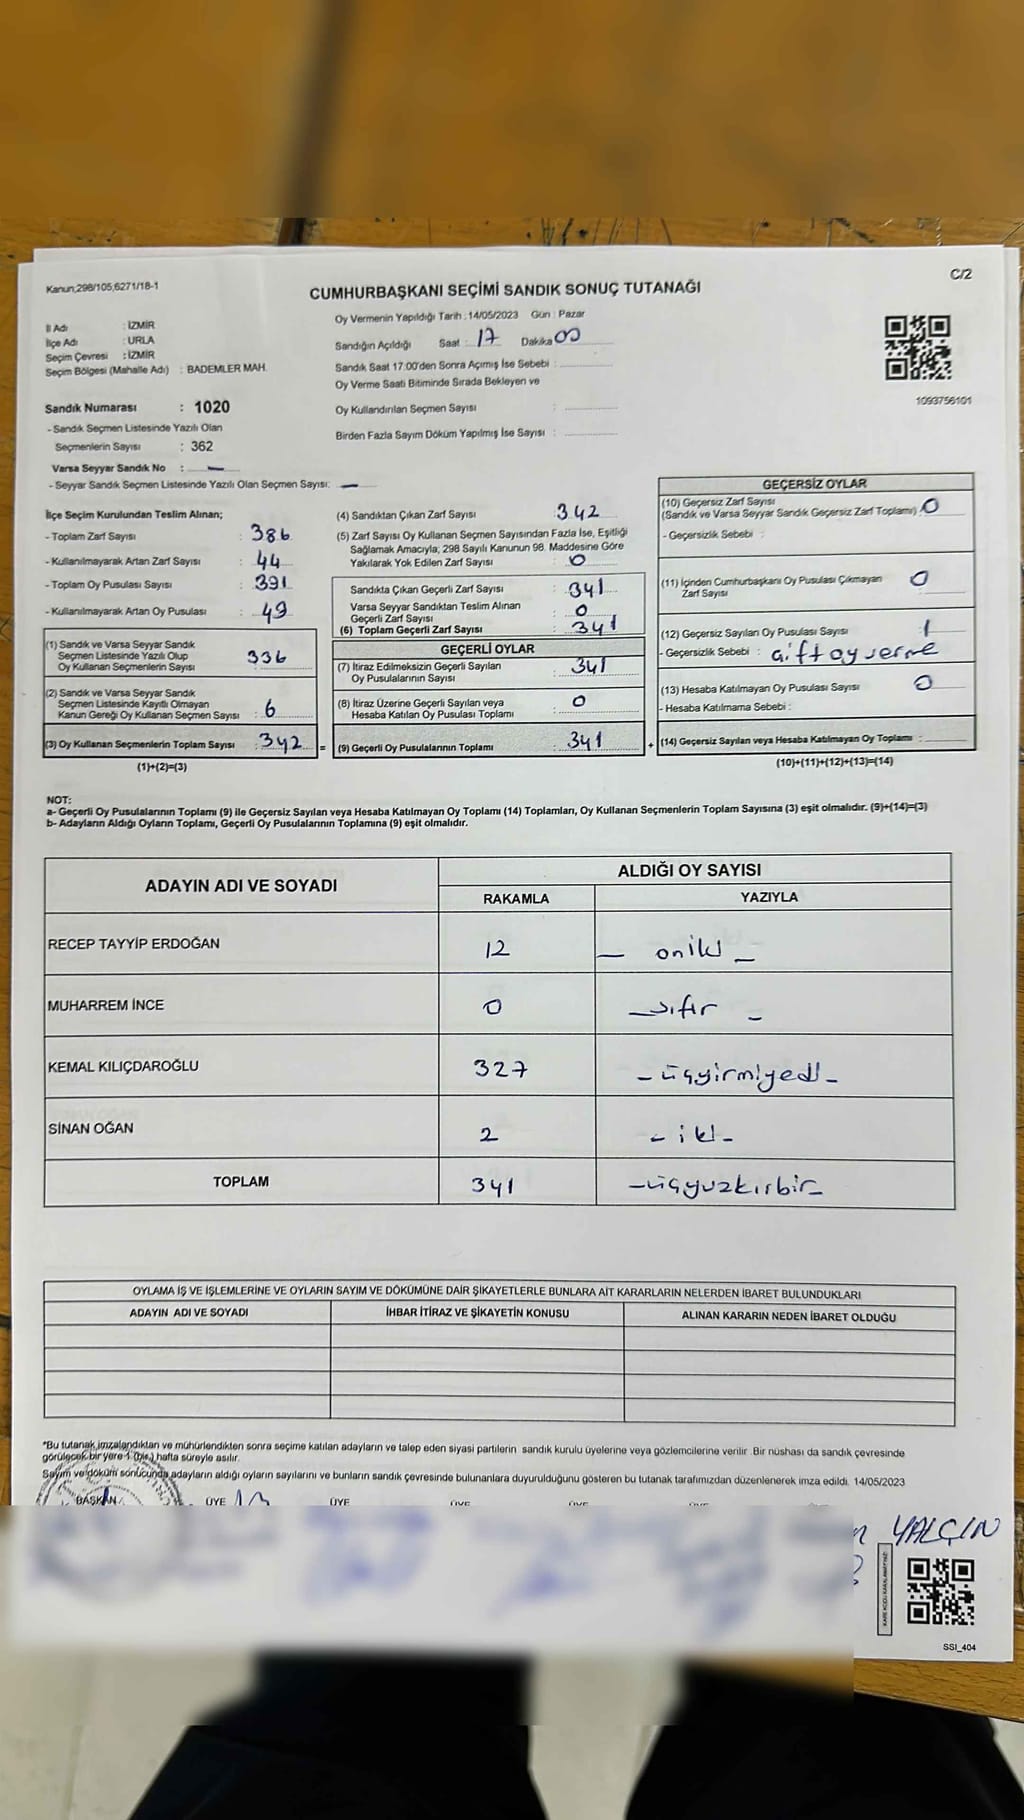 C/2
Kanun,298/105,6271/18-1
CUMHURBAŞKANI SEÇİMİ SANDIK SONUÇ TUTANAĞI
Oy Vermenin Yapıldığı Tarih : 14/05/2023 Gün : Pazar
İl Adı : İZMİR
İlçe Adı : URLA
Seçim Çevresi : İZMİR
Seçim Bölgesi (Mahalle Adı) : BADEMLER MAH.
Sandığın Açıldığı Saat : 17 Dakika 00
Sandık Saat 17:00'den Sonra Açımış İse Sebebi :
Oy Verme Saati Bitiminde Sırada Bekleyen ve
Oy Kullandırılan Seçmen Sayısı :
Birden Fazla Sayım Döküm Yapılmış İse Sayısı :
1093756101
Sandık Numarası : 1020
- Sandık Seçmen Listesinde Yazılı Olan
Seçmenlerin Sayısı : 362
Varsa Seyyar Sandık No : —
- Seyyar Sandık Seçmen Listesinde Yazılı Olan Seçmen Sayısı: —
İlçe Seçim Kurulundan Teslim Alınan;
- Toplam Zarf Sayısı : 386
- Kullanılmayarak Artan Zarf Sayısı : 44
- Toplam Oy Pusulası Sayısı : 391
- Kullanılmayarak Artan Oy Pusulası : 49
(1) Sandık ve Varsa Seyyar Sandık
Seçmen Listesinde Yazılı Olup
Oy Kullanan Seçmenlerin Sayısı 336
(2) Sandık ve Varsa Seyyar Sandık
Seçmen Listesinde Kayıtlı Olmayan
Kanun Gereği Oy Kullanan Seçmen Sayısı : 6
(3) Oy Kullanan Seçmenlerin Toplam Sayısı : 342 =
(1)+(2)=(3)
(4) Sandıktan Çıkan Zarf Sayısı : 342
(5) Zarf Sayısı Oy Kullanan Seçmen Sayısından Fazla İse, Eşitliği
Sağlamak Amacıyla; 298 Sayılı Kanunun 98. Maddesine Göre
Yakılarak Yok Edilen Zarf Sayısı : 0
Sandıkta Çıkan Geçerli Zarf Sayısı : 341
Varsa Seyyar Sandıktan Teslim Alınan
Geçerli Zarf Sayısı : 0
(6) Toplam Geçerli Zarf Sayısı : 341
GEÇERLİ OYLAR
(7) İtiraz Edilmeksizin Geçerli Sayılan
Oy Pusulalarının Sayısı : 341
(8) İtiraz Üzerine Geçerli Sayılan veya
Hesaba Katılan Oy Pusulası Toplamı : 0
(9) Geçerli Oy Pusulalarının Toplamı : 341 +
GEÇERSİZ OYLAR
(10) Geçersiz Zarf Sayısı
(Sandık ve Varsa Seyyar Sandık Geçersiz Zarf Toplamı) : 0
- Geçersizlik Sebebi :
(11) İçinden Cumhurbaşkanı Oy Pusulası Çıkmayan
Zarf Sayısı : 0
(12) Geçersiz Sayılan Oy Pusulası Sayısı : 1
- Geçersizlik Sebebi : çift oy verme
(13) Hesaba Katılmayan Oy Pusulası Sayısı : 0
- Hesaba Katılmama Sebebi :
(14) Geçersiz Sayılan veya Hesaba Katılmayan Oy Toplamı :
(10)+(11)+(12)+(13)=(14)
NOT:
a- Geçerli Oy Pusulalarının Toplamı (9) ile Geçersiz Sayılan veya Hesaba Katılmayan Oy Toplamı (14) Toplamları, Oy Kullanan Seçmenlerin Toplam Sayısına (3) eşit olmalıdır. (9)+(14)=(3)
b- Adayların Aldığı Oyların Toplamı, Geçerli Oy Pusulalarının Toplamına (9) eşit olmalıdır.
ADAYIN ADI VE SOYADI ALDIĞI OY SAYISI
RAKAMLA YAZIYLA
RECEP TAYYİP ERDOĞAN 12 — oniki —
MUHARREM İNCE 0 — sıfır —
KEMAL KILIÇDAROĞLU 327 - üçyirmiyedi -
SİNAN OĞAN 2 - iki -
TOPLAM 341 - üçyuzkırbir -
OYLAMA İŞ VE İŞLEMLERİNE VE OYLARIN SAYIM VE DÖKÜMÜNE DAİR ŞİKAYETLERLE BUNLARA AİT KARARLARIN NELERDEN İBARET BULUNDUKLARI
ADAYIN ADI VE SOYADI İHBAR İTİRAZ VE ŞİKAYETİN KONUSU ALINAN KARARIN NEDEN İBARET OLDUĞU
*Bu tutanak imzalandıktan ve mühürlendikten sonra seçime katılan adayların ve talep eden siyasi partilerin sandık kurulu üyelerine veya gözlemcilerine verilir .Bir nüshası da sandık çevresinde
görülecek bir yere 1 (bir) hafta süreyle asılır.
Sayım ve döküm sonucunda adayların aldığı oyların sayılarını ve bunların sandık çevresinde bulunanlara duyurulduğunu gösteren bu tutanak tarafımızdan düzenlenerek imza edildi. 14/05/2023
BAŞKAN ÜYE ÜYE ÜYE ÜYE ÜYE ÜYE
YALÇIN
SSI_404